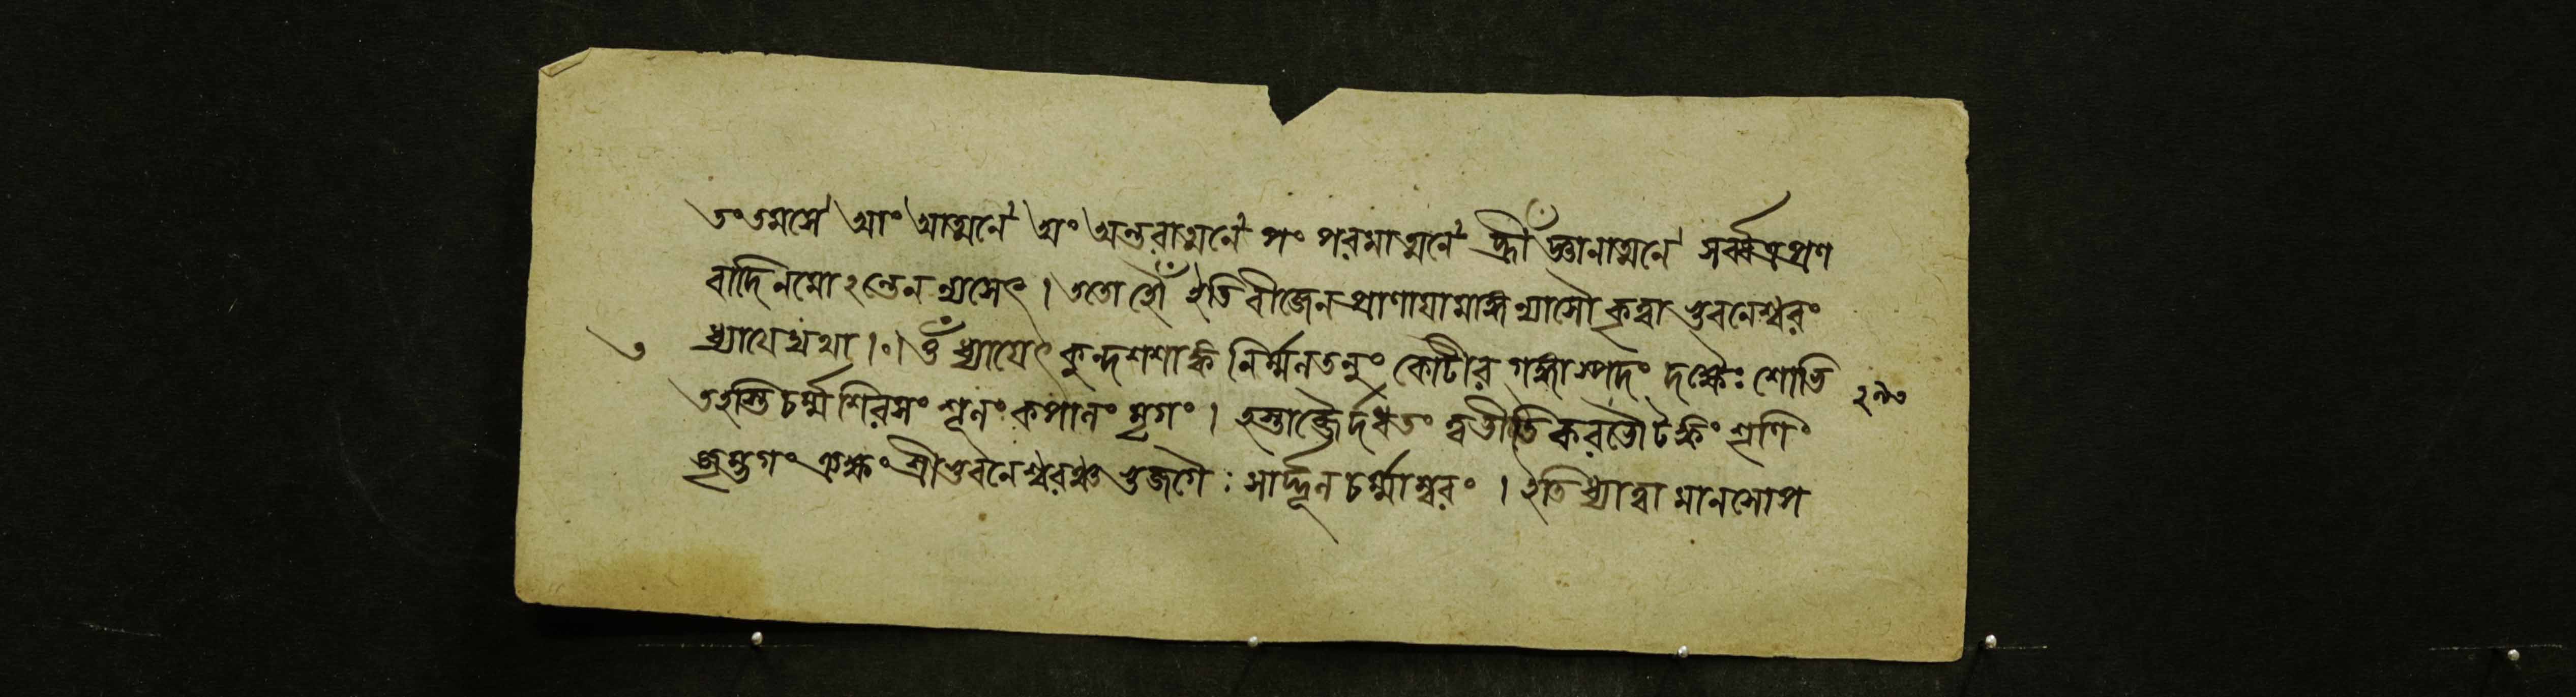 তং তমসে আং আত্মনে অং অন্তরাত্মনে পং পরমাত্মনে হ্রীঁ জ্ঞানাত্মনে সর্ব্বত্র প্রণ
বাদি নমোঽন্তেন ন্যসেৎ । ততো হৌঁ ইতি বীজেন প্রাণায়ামাঙ্গন্যাসৌ কৃত্বা ভুবনেশ্বরং
ধ্যায়েদ্যথা ।ঃ। ওঁ ধ্যায়েৎ কুন্দশশাঙ্কনির্ম্মলতনুং কোটীরগঙ্গাস্পদং শোভি
তং হস্তিচর্ম্মশিরসং শূলং কপালং মৃগং । হস্তাব্জৈর্দধতং
শ্রীভুবনেশ্বরঞ্চ ভুজগৈঃ সার্দ্দূলচর্ম্মাম্বরং । ইতি ধ্যাত্বা মানসোপ